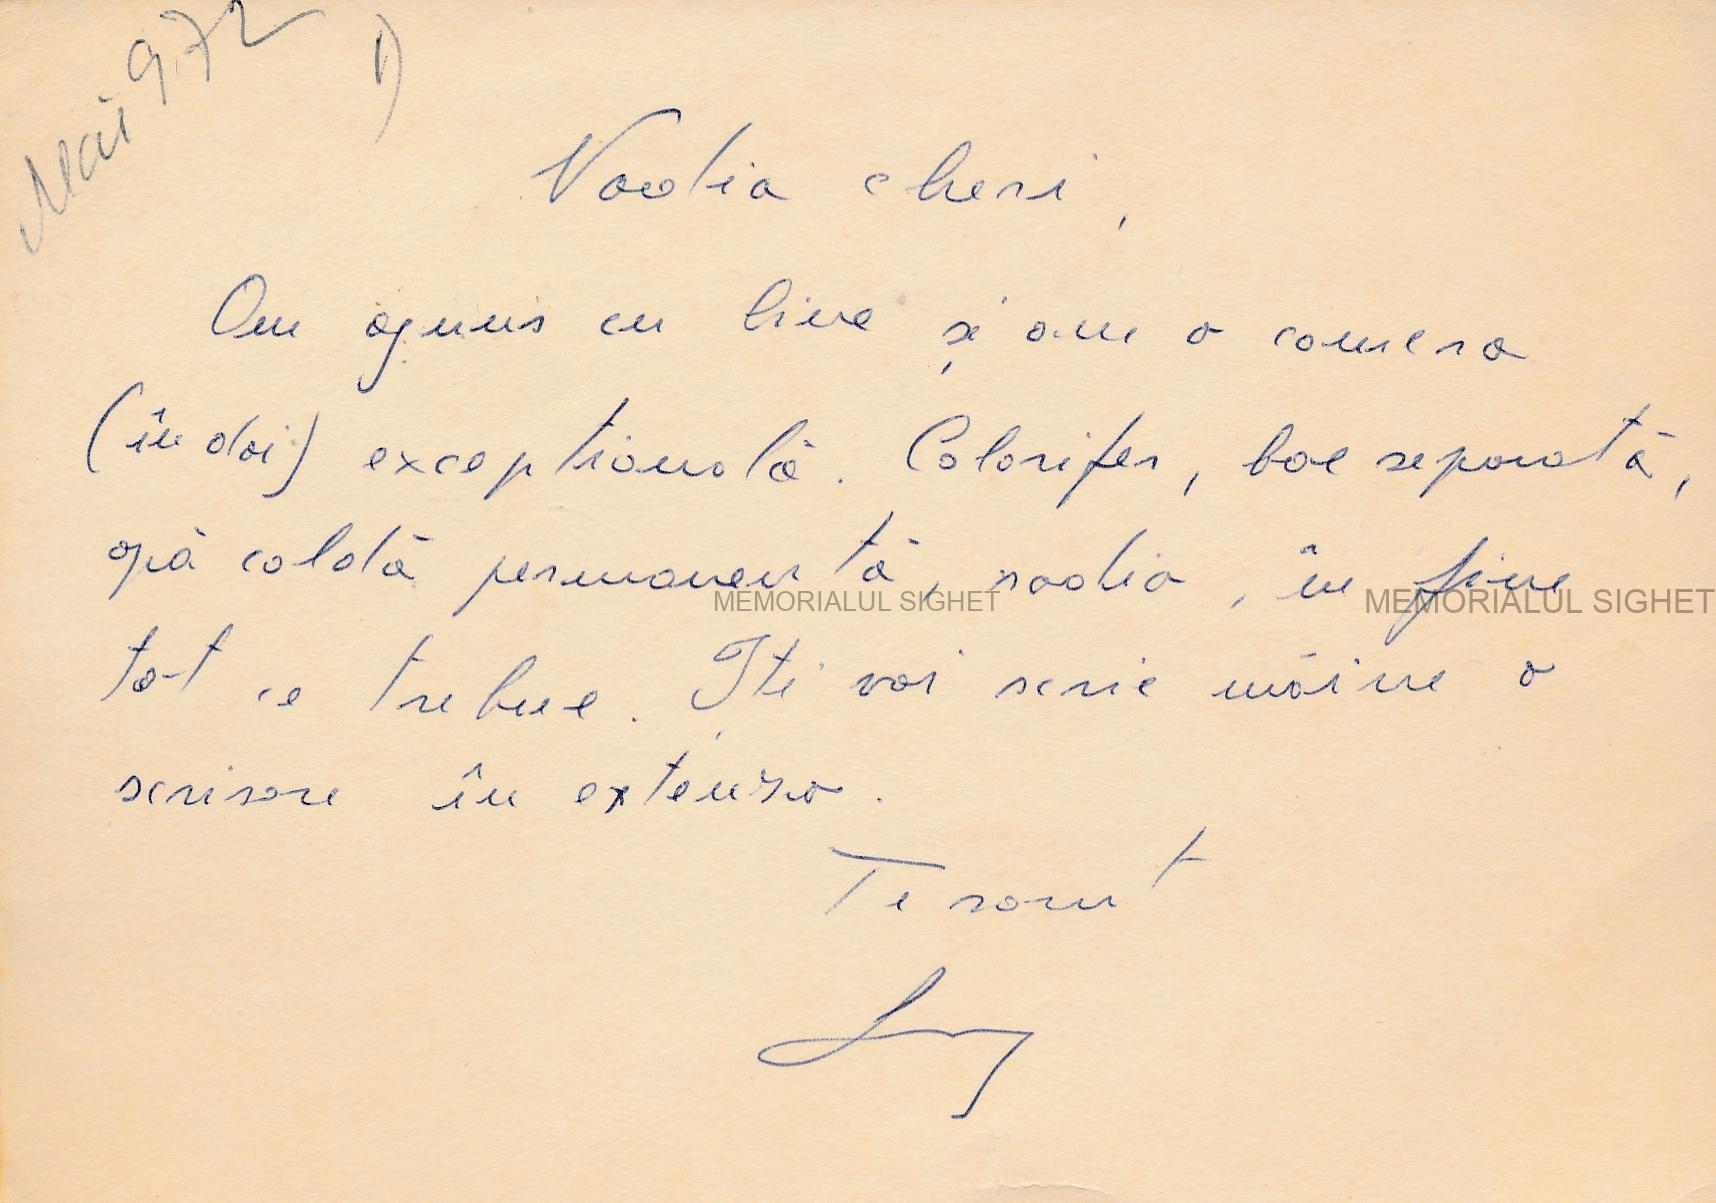 Mai 972
1)
Nadia cheri,
Am ajuns cu bine și am o camera
(în doi) excepțională. Calorifer, bae separată,
apă caldă permanentă, radio, în fine
tot ce trebue. Iți voi scrie mâine o
scrisore în extenso.
Te sărut
MEMORIALUL SIGHET
MEMORIALUL SIGHET